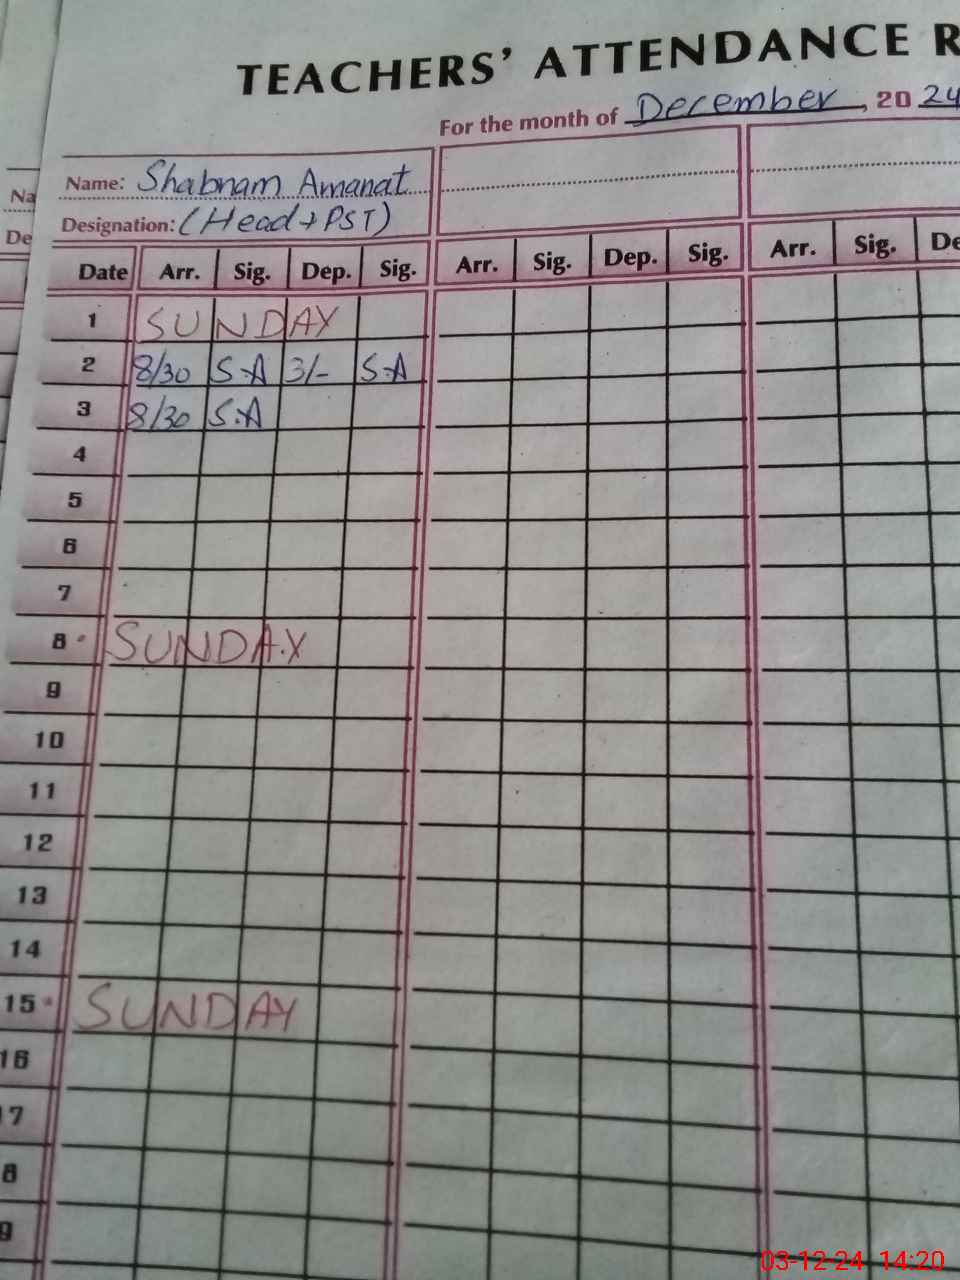 TEACHERS' ATTENDANCE R
For the month of December, 2024
Name: Shabnam Amanat
Designation: (Head+PST)
Na
De
Date Arr. Sig. Dep. Sig. Arr. Sig. Dep. Sig. Arr. Sig. De
1 SUNDAY
2 8/30 S.A 3/- S.A
3 8/30 S.A
4
5
6
7
8 SUNDAY
9
10
11
12
13
14
15 SUNDAY
16
17
8
9
03-12-24 14:20